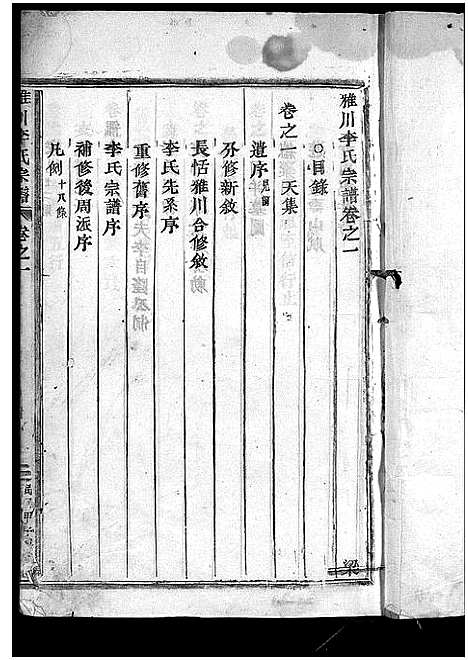 雅川李氏宗譜卷之一
○目錄
卷之一 天集
遺序
修新敘
長恬雅川合修敘
李氏先系序
重修舊序
李氏宗譜序
補修後周派序
凡例 十八條
雅川李氏宗譜 卷之一
梁